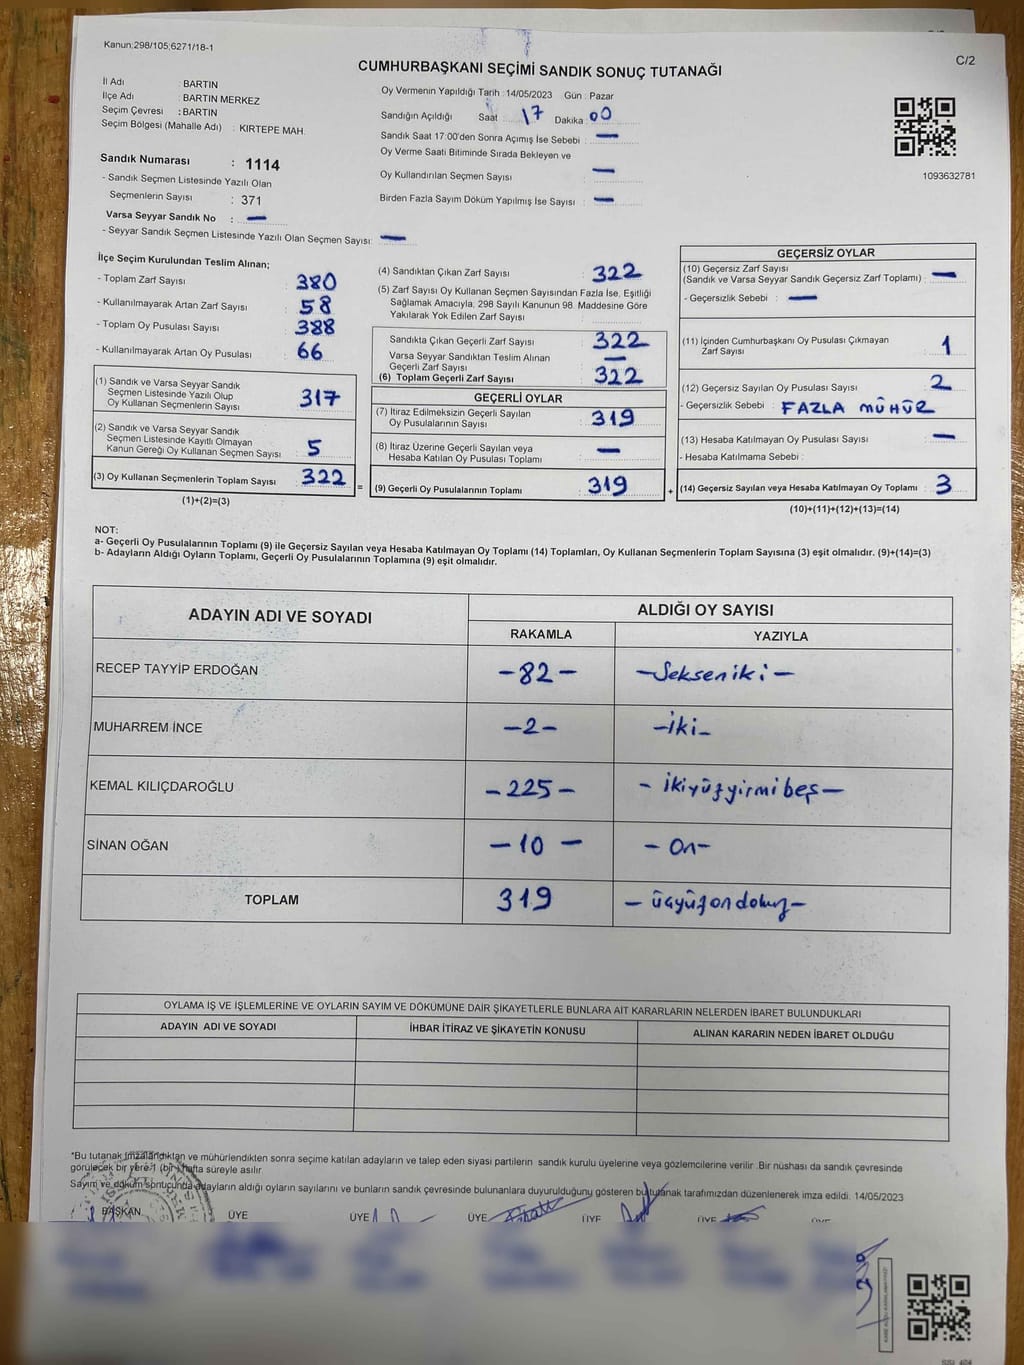 Kanun:298/105;6271/18-1
C/2
CUMHURBAŞKANI SEÇİMİ SANDIK SONUÇ TUTANAĞI
İl Adı : BARTIN
İlçe Adı : BARTIN MERKEZ
Seçim Çevresi : BARTIN
Seçim Bölgesi (Mahalle Adı) : KIRTEPE MAH.
Sandık Numarası : 1114
- Sandık Seçmen Listesinde Yazılı Olan
Seçmenlerin Sayısı : 371
Varsa Seyyar Sandık No : —
- Seyyar Sandık Seçmen Listesinde Yazılı Olan Seçmen Sayısı: —
Oy Vermenin Yapıldığı Tarih : 14/05/2023 Gün : Pazar
Sandığın Açıldığı Saat : 17 Dakika : 00
Sandık Saat 17:00'den Sonra Açımış İse Sebebi : —
Oy Verme Saati Bitiminde Sırada Bekleyen ve
Oy Kullandırılan Seçmen Sayısı : —
Birden Fazla Sayım Döküm Yapılmış İse Sayısı : —
1093632781
İlçe Seçim Kurulundan Teslim Alınan;
- Toplam Zarf Sayısı : 380
- Kullanılmayarak Artan Zarf Sayısı : 58
- Toplam Oy Pusulası Sayısı : 388
- Kullanılmayarak Artan Oy Pusulası : 66
(1) Sandık ve Varsa Seyyar Sandık
Seçmen Listesinde Yazılı Olup
Oy Kullanan Seçmenlerin Sayısı : 317
(2) Sandık ve Varsa Seyyar Sandık
Seçmen Listesinde Kayıtlı Olmayan
Kanun Gereği Oy Kullanan Seçmen Sayısı : 5
(3) Oy Kullanan Seçmenlerin Toplam Sayısı : 322
(1)+(2)=(3)
(4) Sandıktan Çıkan Zarf Sayısı : 322
(5) Zarf Sayısı Oy Kullanan Seçmen Sayısından Fazla İse, Eşitliği
Sağlamak Amacıyla; 298 Sayılı Kanunun 98. Maddesine Göre
Yakılarak Yok Edilen Zarf Sayısı :
Sandıkta Çıkan Geçerli Zarf Sayısı : 322
Varsa Seyyar Sandıktan Teslim Alınan
Geçerli Zarf Sayısı : —
(6) Toplam Geçerli Zarf Sayısı : 322
GEÇERLİ OYLAR
(7) İtiraz Edilmeksizin Geçerli Sayılan
Oy Pusulalarının Sayısı : 319
(8) İtiraz Üzerine Geçerli Sayılan veya
Hesaba Katılan Oy Pusulası Toplamı : —
= (9) Geçerli Oy Pusulalarının Toplamı : 319
GEÇERSİZ OYLAR
(10) Geçersiz Zarf Sayısı
(Sandık ve Varsa Seyyar Sandık Geçersiz Zarf Toplamı) : —
- Geçersizlik Sebebi : —
(11) İçinden Cumhurbaşkanı Oy Pusulası Çıkmayan
Zarf Sayısı : 1
(12) Geçersiz Sayılan Oy Pusulası Sayısı : 2
- Geçersizlik Sebebi : FAZLA MÜHÜR
(13) Hesaba Katılmayan Oy Pusulası Sayısı : —
- Hesaba Katılmama Sebebi :
+ (14) Geçersiz Sayılan veya Hesaba Katılmayan Oy Toplamı : 3
(10)+(11)+(12)+(13)=(14)
NOT:
a- Geçerli Oy Pusulalarının Toplamı (9) ile Geçersiz Sayılan veya Hesaba Katılmayan Oy Toplamı (14) Toplamları, Oy Kullanan Seçmenlerin Toplam Sayısına (3) eşit olmalıdır. (9)+(14)=(3)
b- Adayların Aldığı Oyların Toplamı, Geçerli Oy Pusulalarının Toplamına (9) eşit olmalıdır.
ADAYIN ADI VE SOYADI ALDIĞI OY SAYISI
RAKAMLA YAZIYLA
RECEP TAYYİP ERDOĞAN -82- -Sekseniki-
MUHARREM İNCE -2- -iki-
KEMAL KILIÇDAROĞLU -225- -ikiyüzyirmibeş-
SİNAN OĞAN -10- -On-
TOPLAM 319 -üçyüzondokuz-
OYLAMA İŞ VE İŞLEMLERİNE VE OYLARIN SAYIM VE DÖKÜMÜNE DAİR ŞİKAYETLERLE BUNLARA AİT KARARLARIN NELERDEN İBARET BULUNDUKLARI
ADAYIN ADI VE SOYADI İHBAR İTİRAZ VE ŞİKAYETİN KONUSU ALINAN KARARIN NEDEN İBARET OLDUĞU
*Bu tutanak imzalandıktan ve mühürlendikten sonra seçime katılan adayların ve talep eden siyasi partilerin sandık kurulu üyelerine veya gözlemcilerine verilir .Bir nüshası da sandık çevresinde
görülecek bir yere 1 (bir) hafta süreyle asılır.
Sayım ve döküm sonucunda adayların aldığı oyların sayılarını ve bunların sandık çevresinde bulunanlara duyurulduğunu gösteren bu tutanak tarafımızdan düzenlenerek imza edildi. 14/05/2023
BAŞKAN ÜYE ÜYE ÜYE ÜYE ÜYE ÜYE